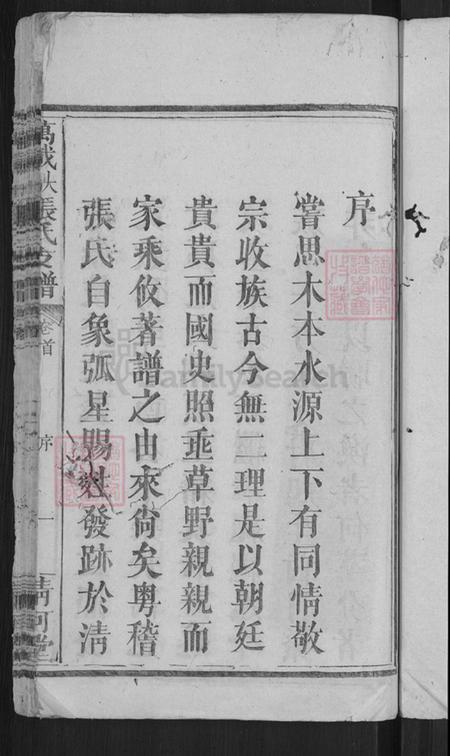 序
嘗思木本水源上下有同情敬
宗收族古今無二理是以朝廷
貴貴而國史照垂草野親親而
家乘攸著譜之由來尙矣粵稽
張氏自象弧星賜姓發跡於淸
萬載 張氏支譜
卷首
序
一
淸河堂
FamilySearch